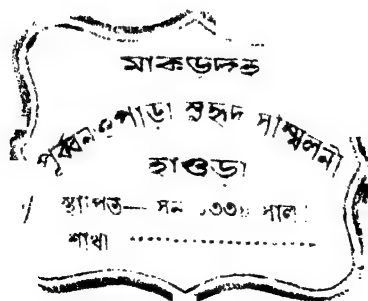 মাকড়দহ
পূর্ব্বান্নপাড়া সুহৃদ সাম্মলনী
হাওড়া
স্থাপিত— সন ১৩৩ সাল
শাখা ....................